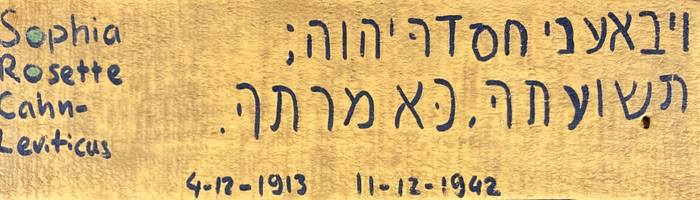 Sophia
Rosette
Cahn-
Leviticus
ויבאעני חסדך יהוה;
תשועתך, כאמרתך.
4-12-1913 11-12-1942